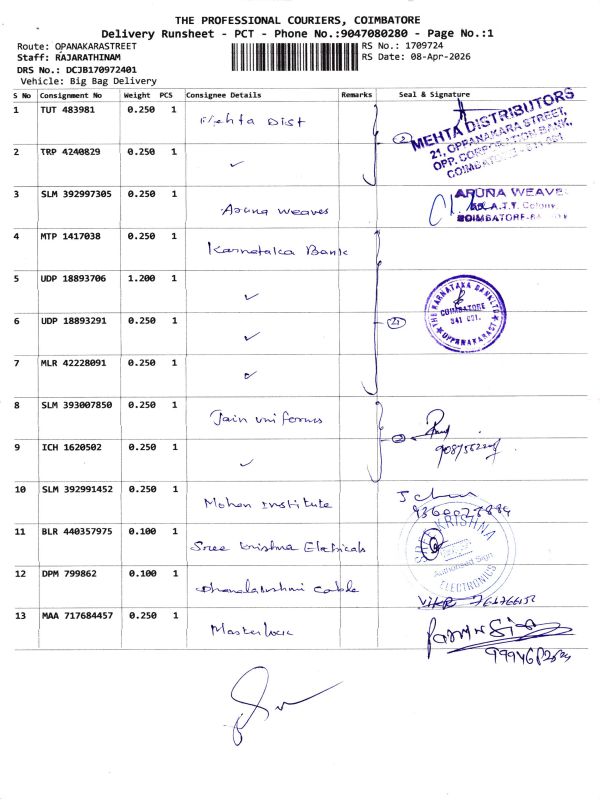 THE PROFESSIONAL COURIERS, COIMBATORE
Delivery Runsheet - PCT - Phone No.:9047080280 - Page No.:1
Route: OPANAKARASTREET
RS No.: 1709724
Staff: RAJARATHINAM
RS Date: 08-Apr-2026
DRS No.: DCJB170972401
Vehicle: Big Bag Delivery
S No Consignment No Weight PCS Consignee Details Remarks Seal & Signature
1 TUT 483981 0.250 1 Mehta Dist
MEHTA DISTRIBUTORS
21, OPPANAKARA STREET,
OPP. CORPORATION BANK,
2 TRP 4240829 0.250 1 ✓
3 SLM 392997305 0.250 1 Aruna weaves
ARUNA WEAVES
A.T.T. Colony
COIMBATORE
4 MTP 1417038 0.250 1 Karnataka Bank
5 UDP 18893706 1.200 1 ✓
THE KARNATAKA BANK LTD
COIMBATORE
641 001.
OPPANAKARAST
6 UDP 18893291 0.250 1 ✓
7 MLR 42228091 0.250 1 ✓
8 SLM 393007850 0.250 1 Jain uniforms
9 ICH 1620502 0.250 1 ✓
10 SLM 392991452 0.250 1 Mohan Institute
11 BLR 440357975 0.100 1 Sree Krishna Electricals
SRI KRISHNA
Authorised Sign
ELECTRONICS
12 DPM 799862 0.100 1 Dhanalakshmi cable
13 MAA 717684457 0.250 1